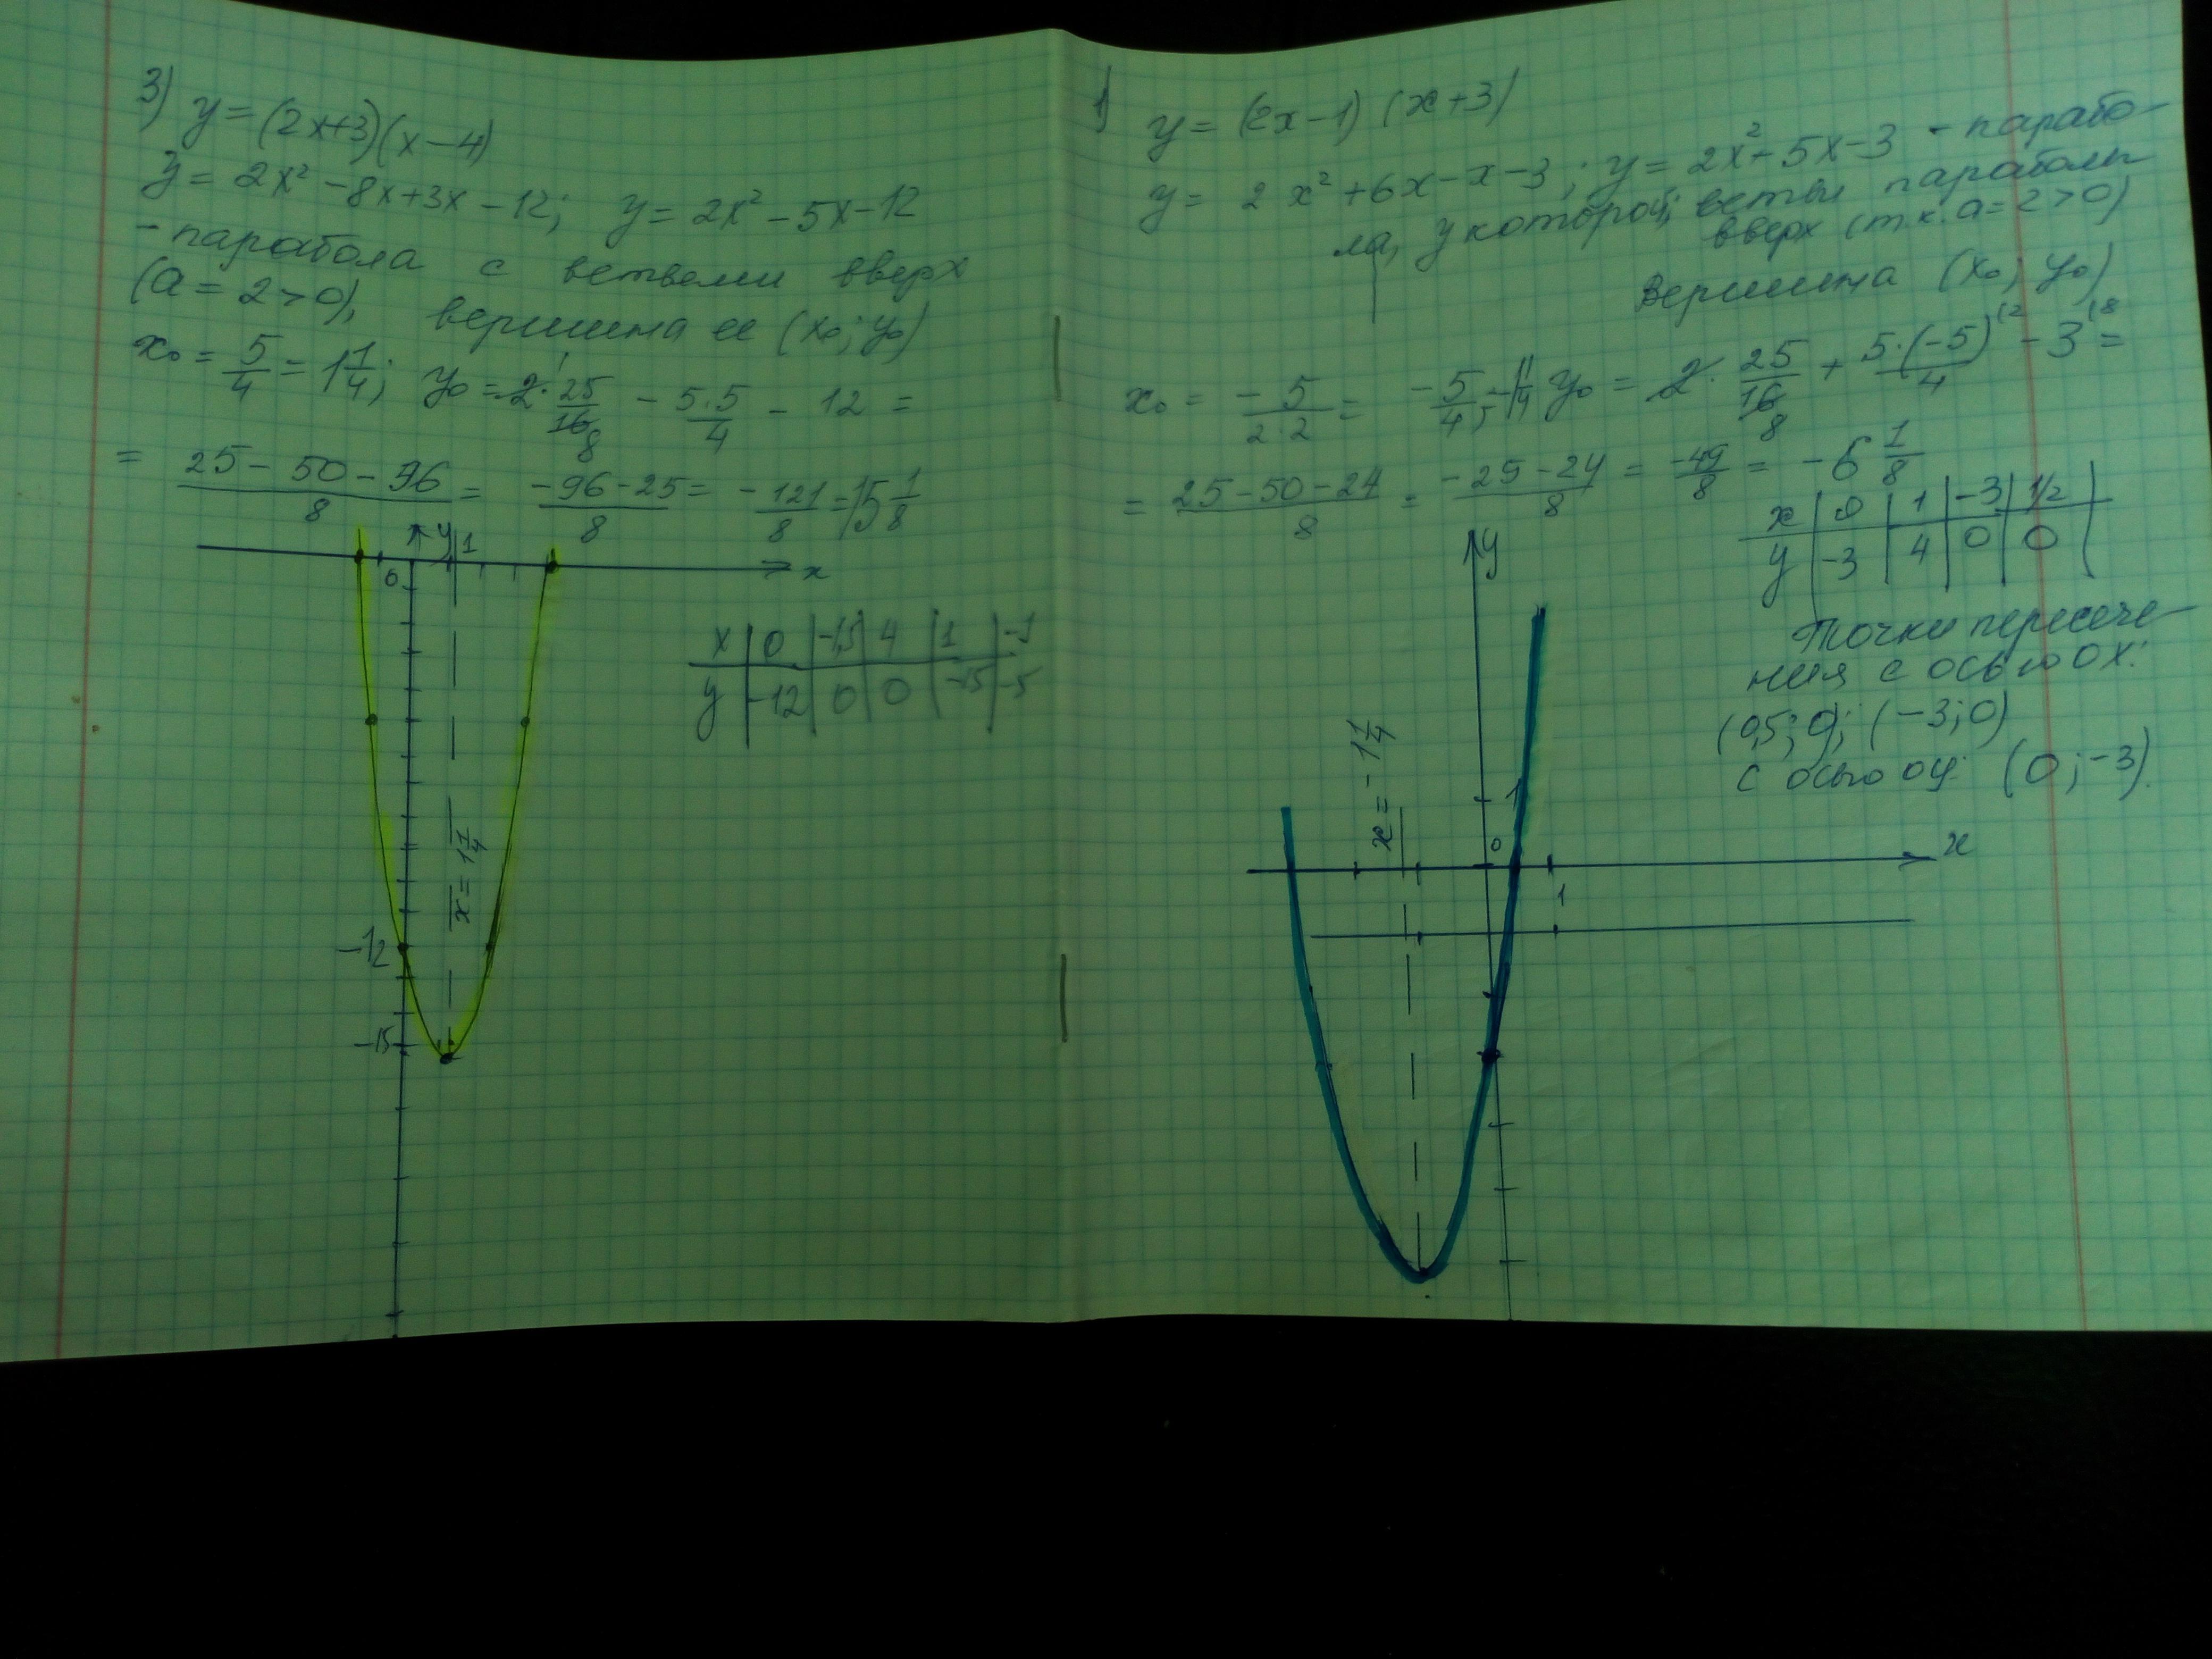 3) y = (2x+3)(x-4)
y = 2x² - 8x + 3x - 12; y = 2x² - 5x - 12
- парабола с ветвями вверх
(a = 2 > 0), вершина ее (x₀; y₀)
x₀ = 5/4 = 1 1/4; y₀ = 2 · 25/16 - 5·5/4 - 12 =
= (25 - 50 - 96)/8 = (-96 - 25)/8 = -121/8 = 15 1/8
y
1
0
x
x | 0 | -1,5 | 4 | 1 | -1
y | -12 | 0 | 0 | -15 | -5
x = 1 1/4
-12
-15
1) y = (2x-1)(x+3)
y = 2x² + 6x - x - 3; y = 2x² + 5x - 3 - парабо-
ла, у которой ветви параболы
вверх (т.к. a = 2 > 0)
Вершина (x₀; y₀)
x₀ = -5/(2·2) = -5/4; y₀ = 2 · 25/16 + 5·(-5)/4 - 3 =
= (25 - 50 - 24)/8 = (-25 - 24)/8 = -49/8 = -6 1/8
x | 0 | 1 | -3 | 1/2
y | -3 | 4 | 0 | 0
Точки пересече-
ния с осью OX:
(0,5; 0); (-3; 0)
с осью OY: (0; -3).
y
x = -1 1/4
1
0
x
1